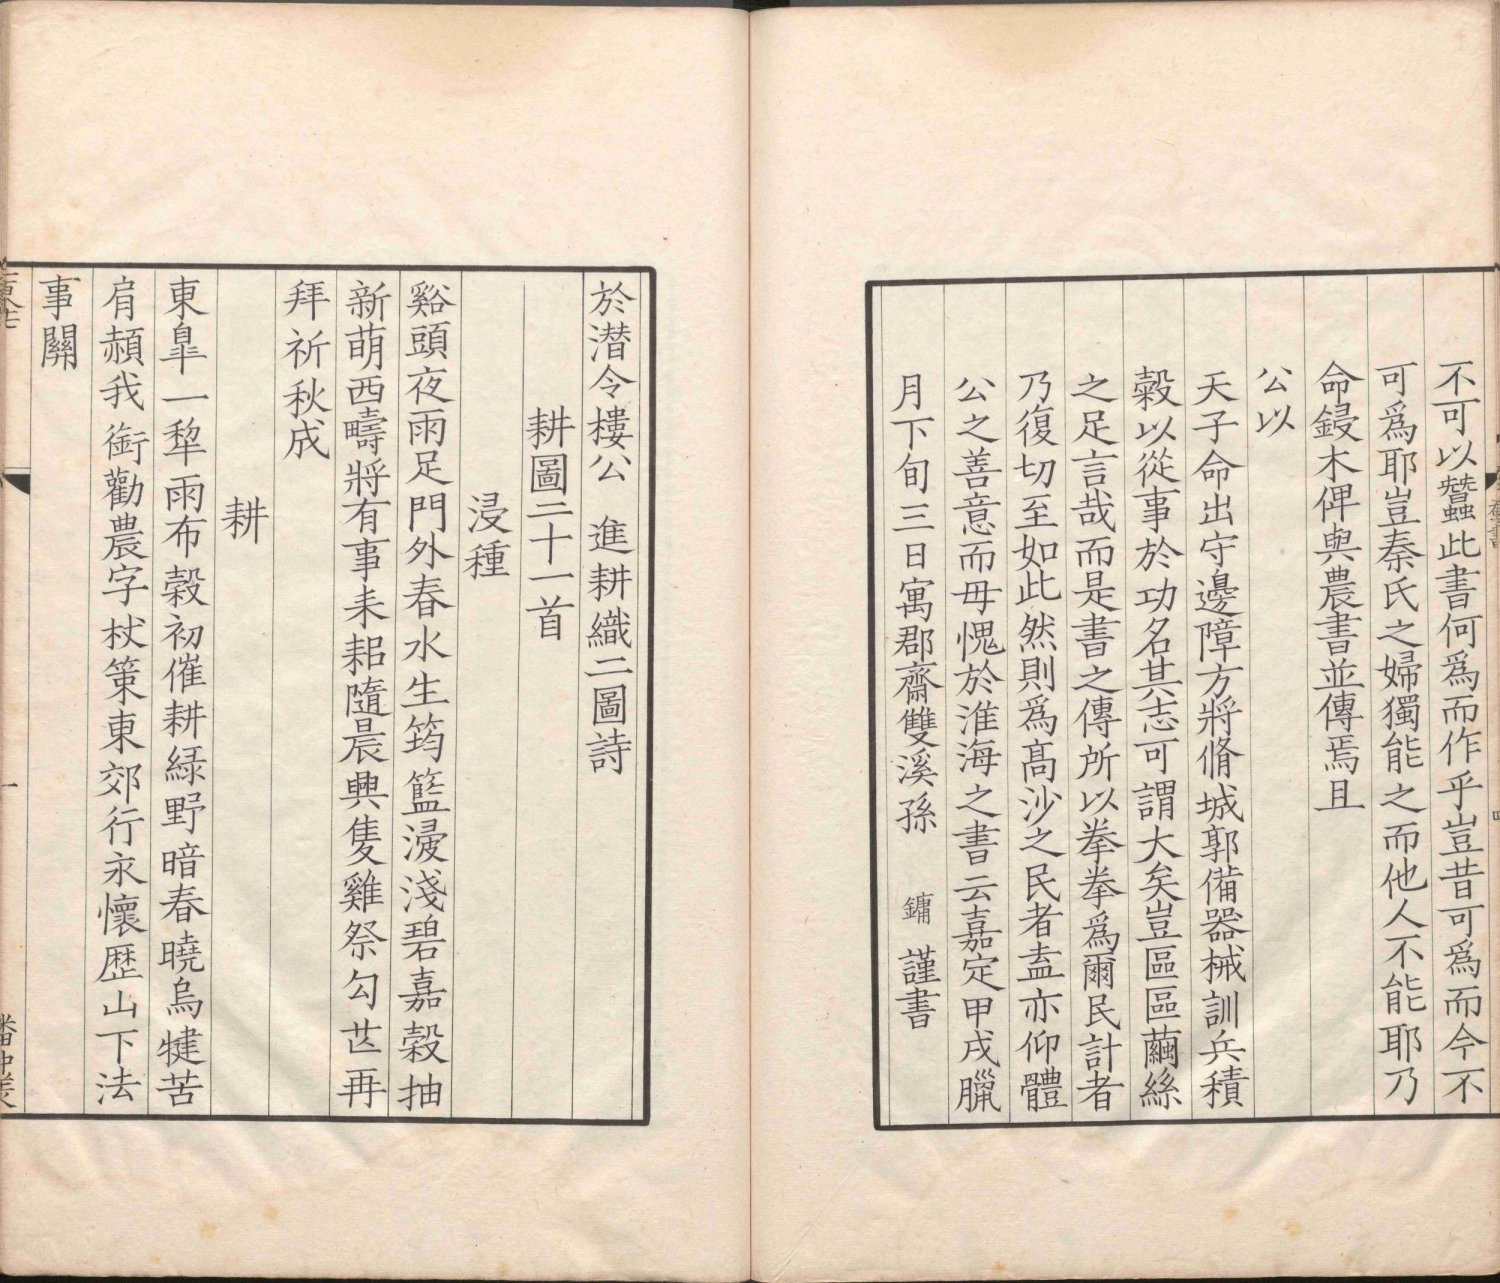 不可以蠶此書何爲而作乎豈昔可爲而今不
可爲耶豈秦氏之婦獨能之而他人不能耶乃
命鋟木俾與農書並傳焉且
公以
天子命出守邊障方將脩城郭備器械訓兵積
榖以從事於功名其志可謂大矣豈區區繭絲
之足言哉而是書之傳所以拳拳爲爾民計者
乃復切至如此然則爲高沙之民者盍亦仰體
公之善意而毋愧於淮海之書云嘉定甲戌臘
月下旬三日寓郡齋雙溪孫 鏞 謹書
於潛令樓公 進耕織二圖詩
耕圖二十一首
浸種
谿頭夜雨足門外春水生筠籃浸淺碧嘉榖抽
新萌西疇將有事耒耜隨晨興隻雞祭勾芒再
拜祈秋成
耕
東臯一犂雨布榖初催耕綠野暗春曉烏犍苦
肩頳我銜勸農字杖策東郊行永懷歷山下法
事關